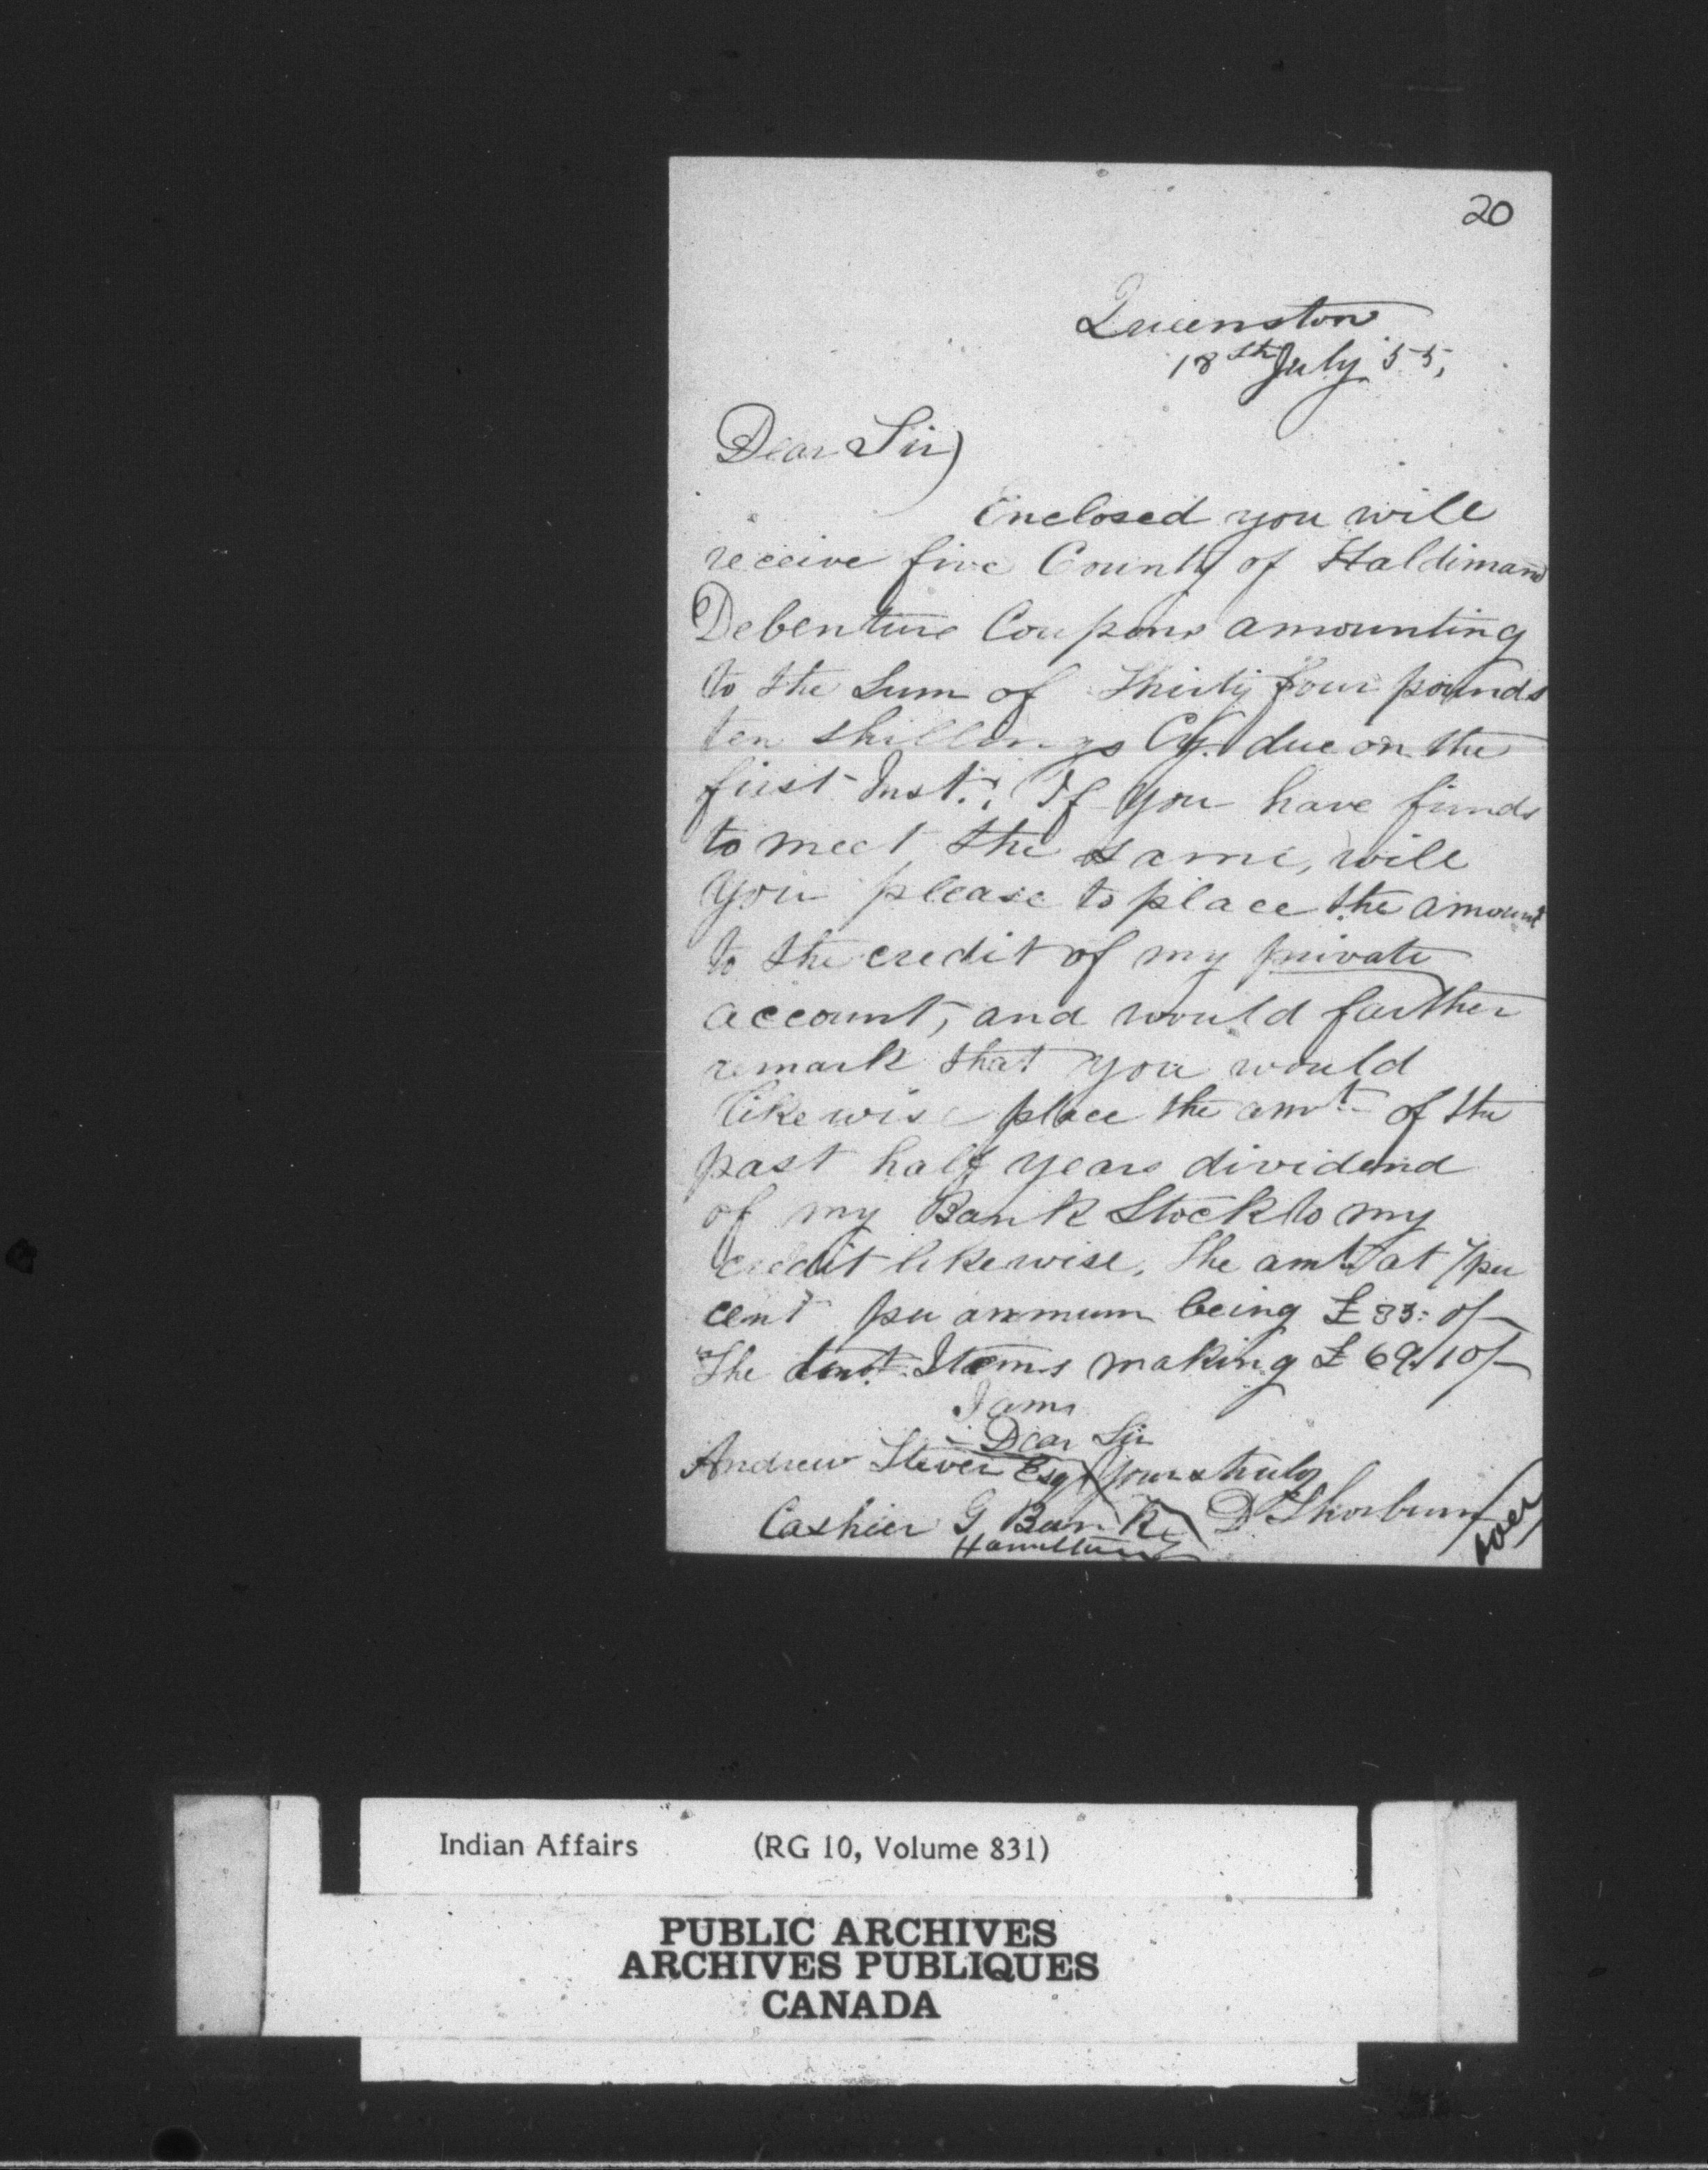 20
Queenston
18th July 55,
Dear Sir
Enclosed you will
receive five County of Haldimand
Debenture Coupons amounting
to the Sum of Thirty four pounds
ten shillings Cy. due on the
first Inst. If you have funds
to meet the same, will
you please to place the amount
to the credit of my private
account, and would farther
remark that you would
likewise place the amt. of the
past half years dividend
of my Bank Stock to my
credit likewise, The amt. at 7 per
cent per annum being £ 35: 0/-
The Items making £ 69.10/-
I am
Dear Sir
Andrew Steven Esqr Yours truly
Cashier G Bank D Thorburn
Hamilton
over
Indian Affairs (RG 10, Volume 831)
PUBLIC ARCHIVES
ARCHIVES PUBLIQUES
CANADA